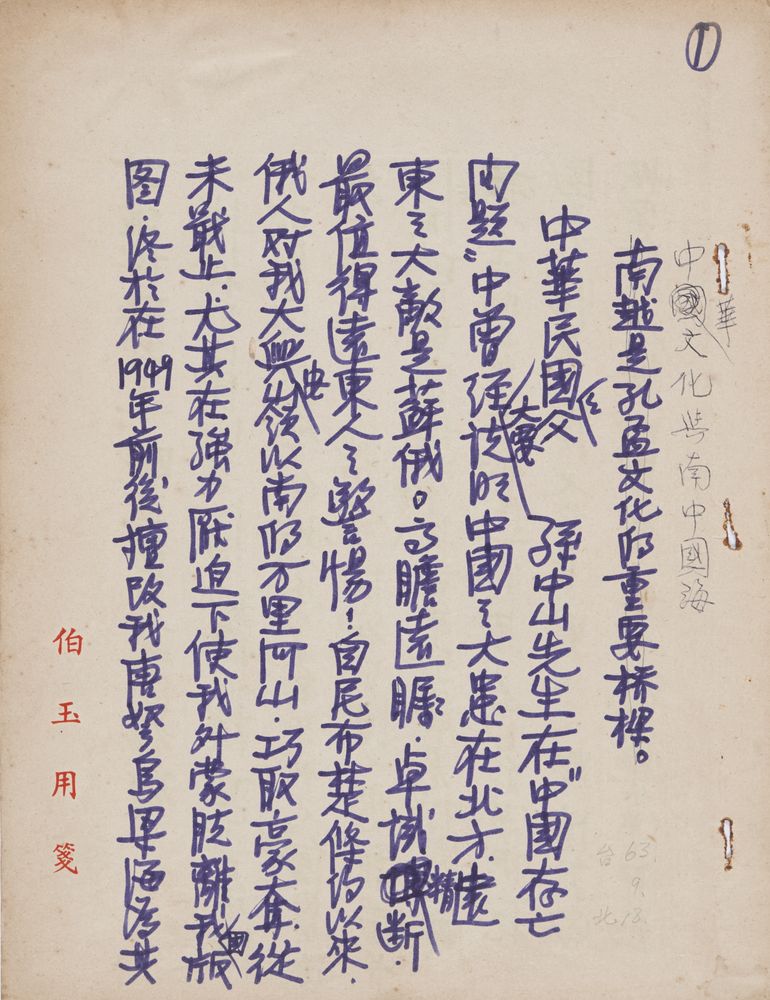 ①
中華國文化與南中國海
南越是孔孟文化的重要桥樑。
中華民國之父 孫中山先生在"中國存亡
问题"中曾經大畧说明中國之大患在北方,遠
東之大敵是蘇俄。高瞻遠矚.卓越精断.
最值得遠東人之警惕!自尼布楚條约以來.
俄人对我大興安嶺以南的万里河山.巧取豪奪.從
未戢止.尤其在強力压迫下使我外蒙脱離我國版
图.终於在1949年前後擅改我唐努烏梁海為其
伯玉用箋
台 63.
9.
北 18.